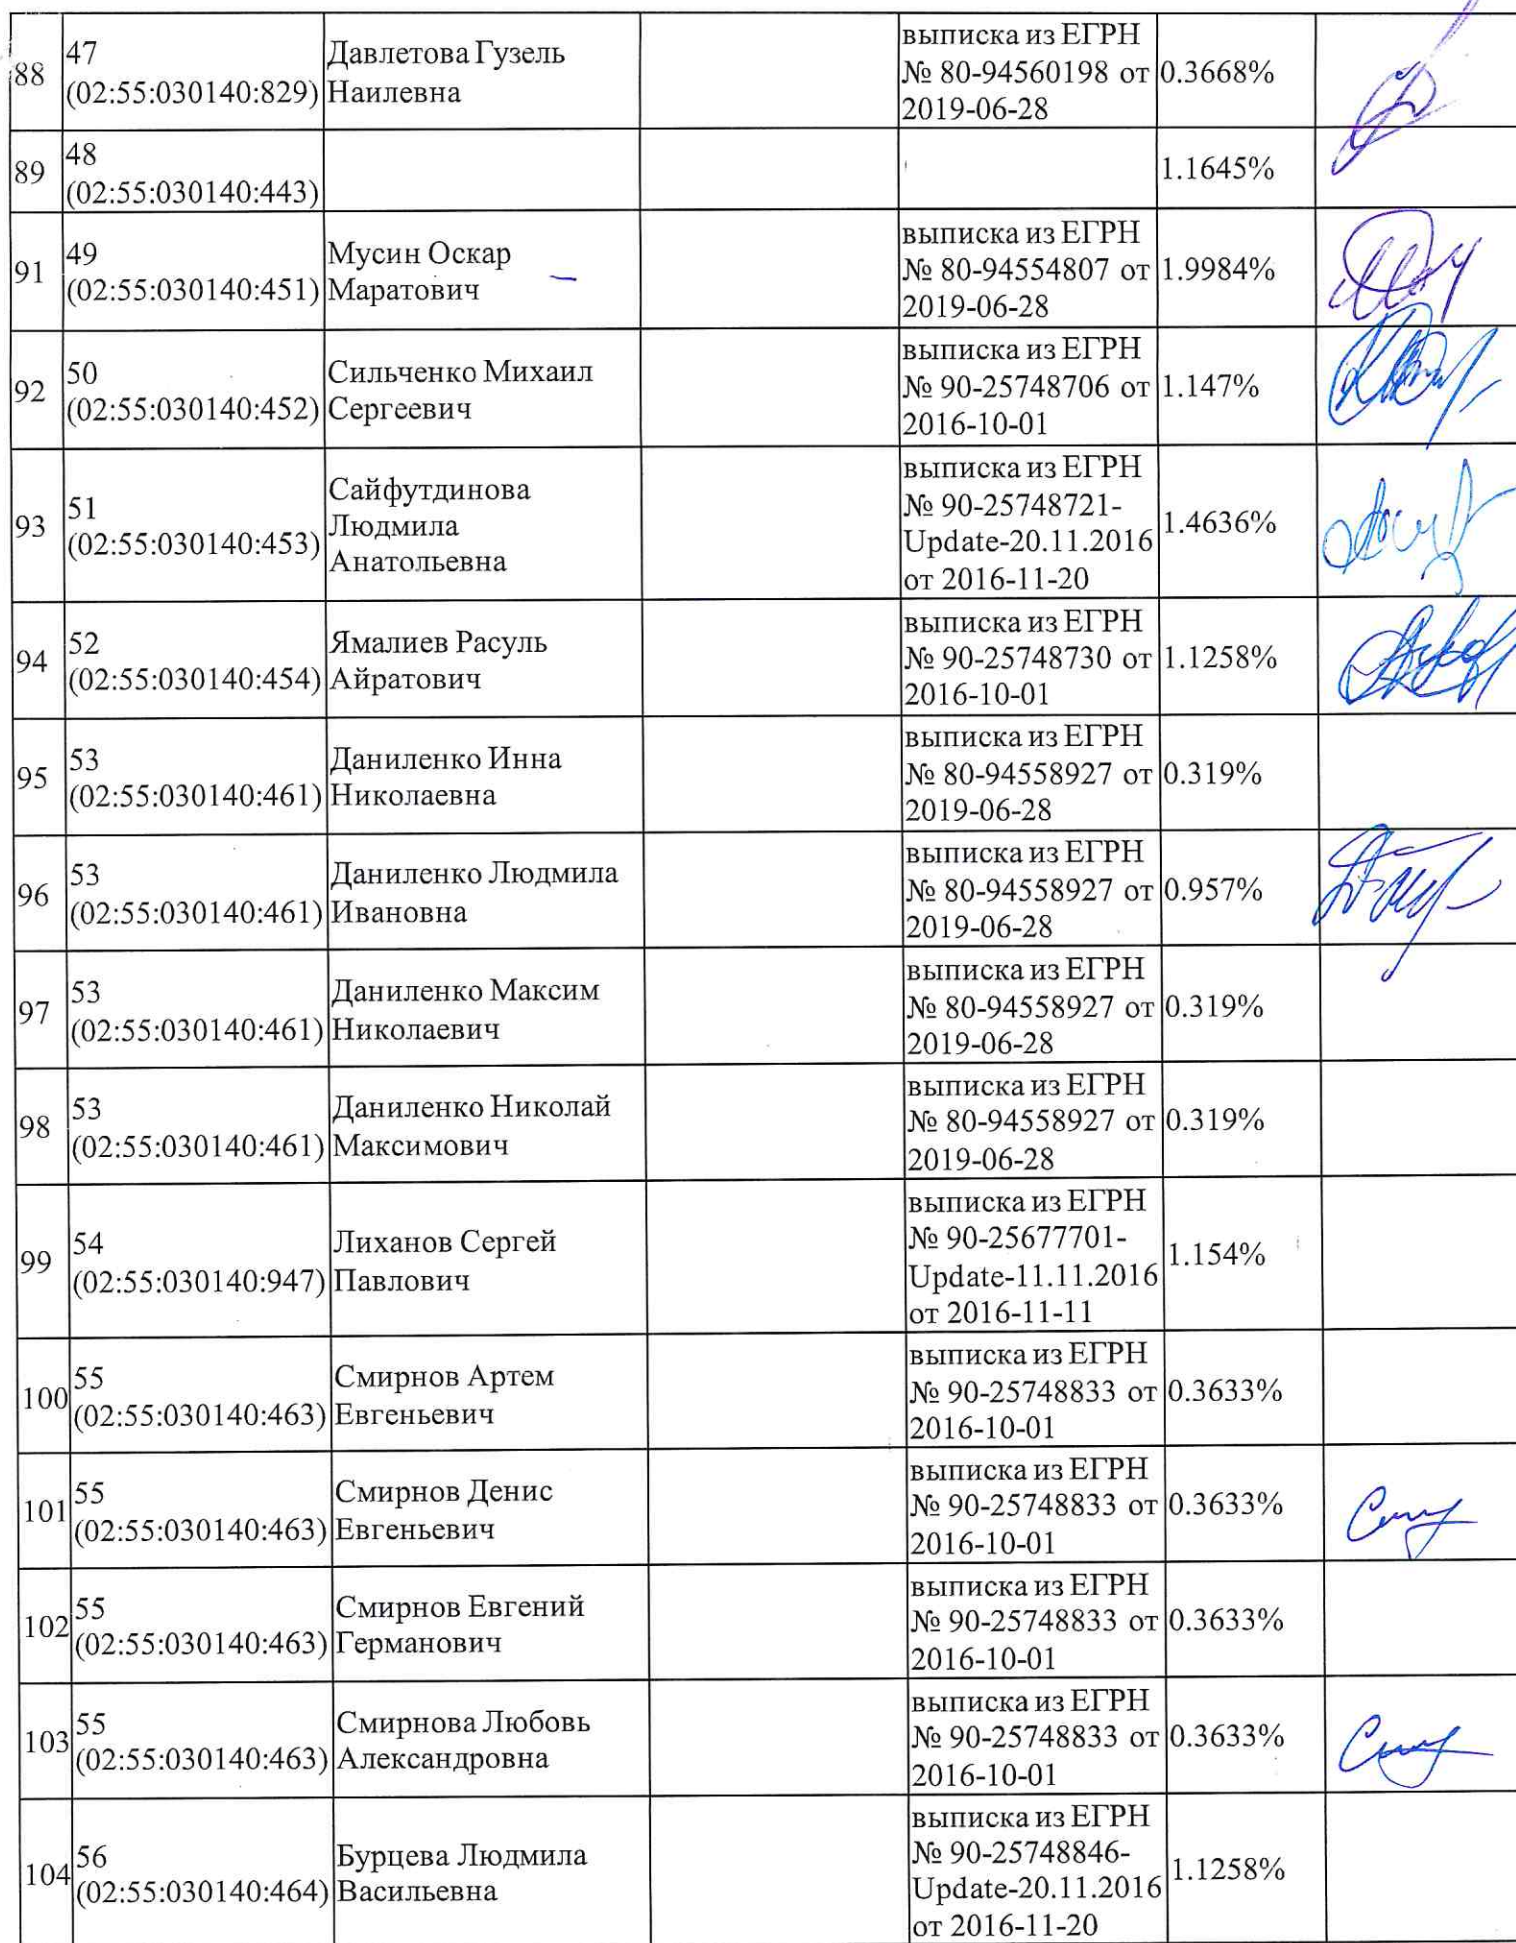 88
47
(02:55:030140:829)
Давлетова Гузель
Наилевна
выписка из ЕГРН
№ 80-94560198 от
2019-06-28
0.3668%
89
48
(02:55:030140:443)
1.1645%
91
49
(02:55:030140:451)
Мусин Оскар
Маратович
выписка из ЕГРН
№ 80-94554807 от
2019-06-28
1.9984%
92
50
(02:55:030140:452)
Сильченко Михаил
Сергеевич
выписка из ЕГРН
№ 90-25748706 от
2016-10-01
1.147%
93
51
(02:55:030140:453)
Сайфутдинова
Людмила
Анатольевна
выписка из ЕГРН
№ 90-25748721-
Update-20.11.2016
от 2016-11-20
1.4636%
94
52
(02:55:030140:454)
Ямалиев Расуль
Айратович
выписка из ЕГРН
№ 90-25748730 от
2016-10-01
1.1258%
95
53
(02:55:030140:461)
Даниленко Инна
Николаевна
выписка из ЕГРН
№ 80-94558927 от
2019-06-28
0.319%
96
53
(02:55:030140:461)
Даниленко Людмила
Ивановна
выписка из ЕГРН
№ 80-94558927 от
2019-06-28
0.957%
97
53
(02:55:030140:461)
Даниленко Максим
Николаевич
выписка из ЕГРН
№ 80-94558927 от
2019-06-28
0.319%
98
53
(02:55:030140:461)
Даниленко Николай
Максимович
выписка из ЕГРН
№ 80-94558927 от
2019-06-28
0.319%
99
54
(02:55:030140:947)
Лиханов Сергей
Павлович
выписка из ЕГРН
№ 90-25677701-
Update-11.11.2016
от 2016-11-11
1.154%
100
55
(02:55:030140:463)
Смирнов Артем
Евгеньевич
выписка из ЕГРН
№ 90-25748833 от
2016-10-01
0.3633%
101
55
(02:55:030140:463)
Смирнов Денис
Евгеньевич
выписка из ЕГРН
№ 90-25748833 от
2016-10-01
0.3633%
102
55
(02:55:030140:463)
Смирнов Евгений
Германович
выписка из ЕГРН
№ 90-25748833 от
2016-10-01
0.3633%
103
55
(02:55:030140:463)
Смирнова Любовь
Александровна
выписка из ЕГРН
№ 90-25748833 от
2016-10-01
0.3633%
104
56
(02:55:030140:464)
Бурцева Людмила
Васильевна
выписка из ЕГРН
№ 90-25748846-
Update-20.11.2016
от 2016-11-20
1.1258%